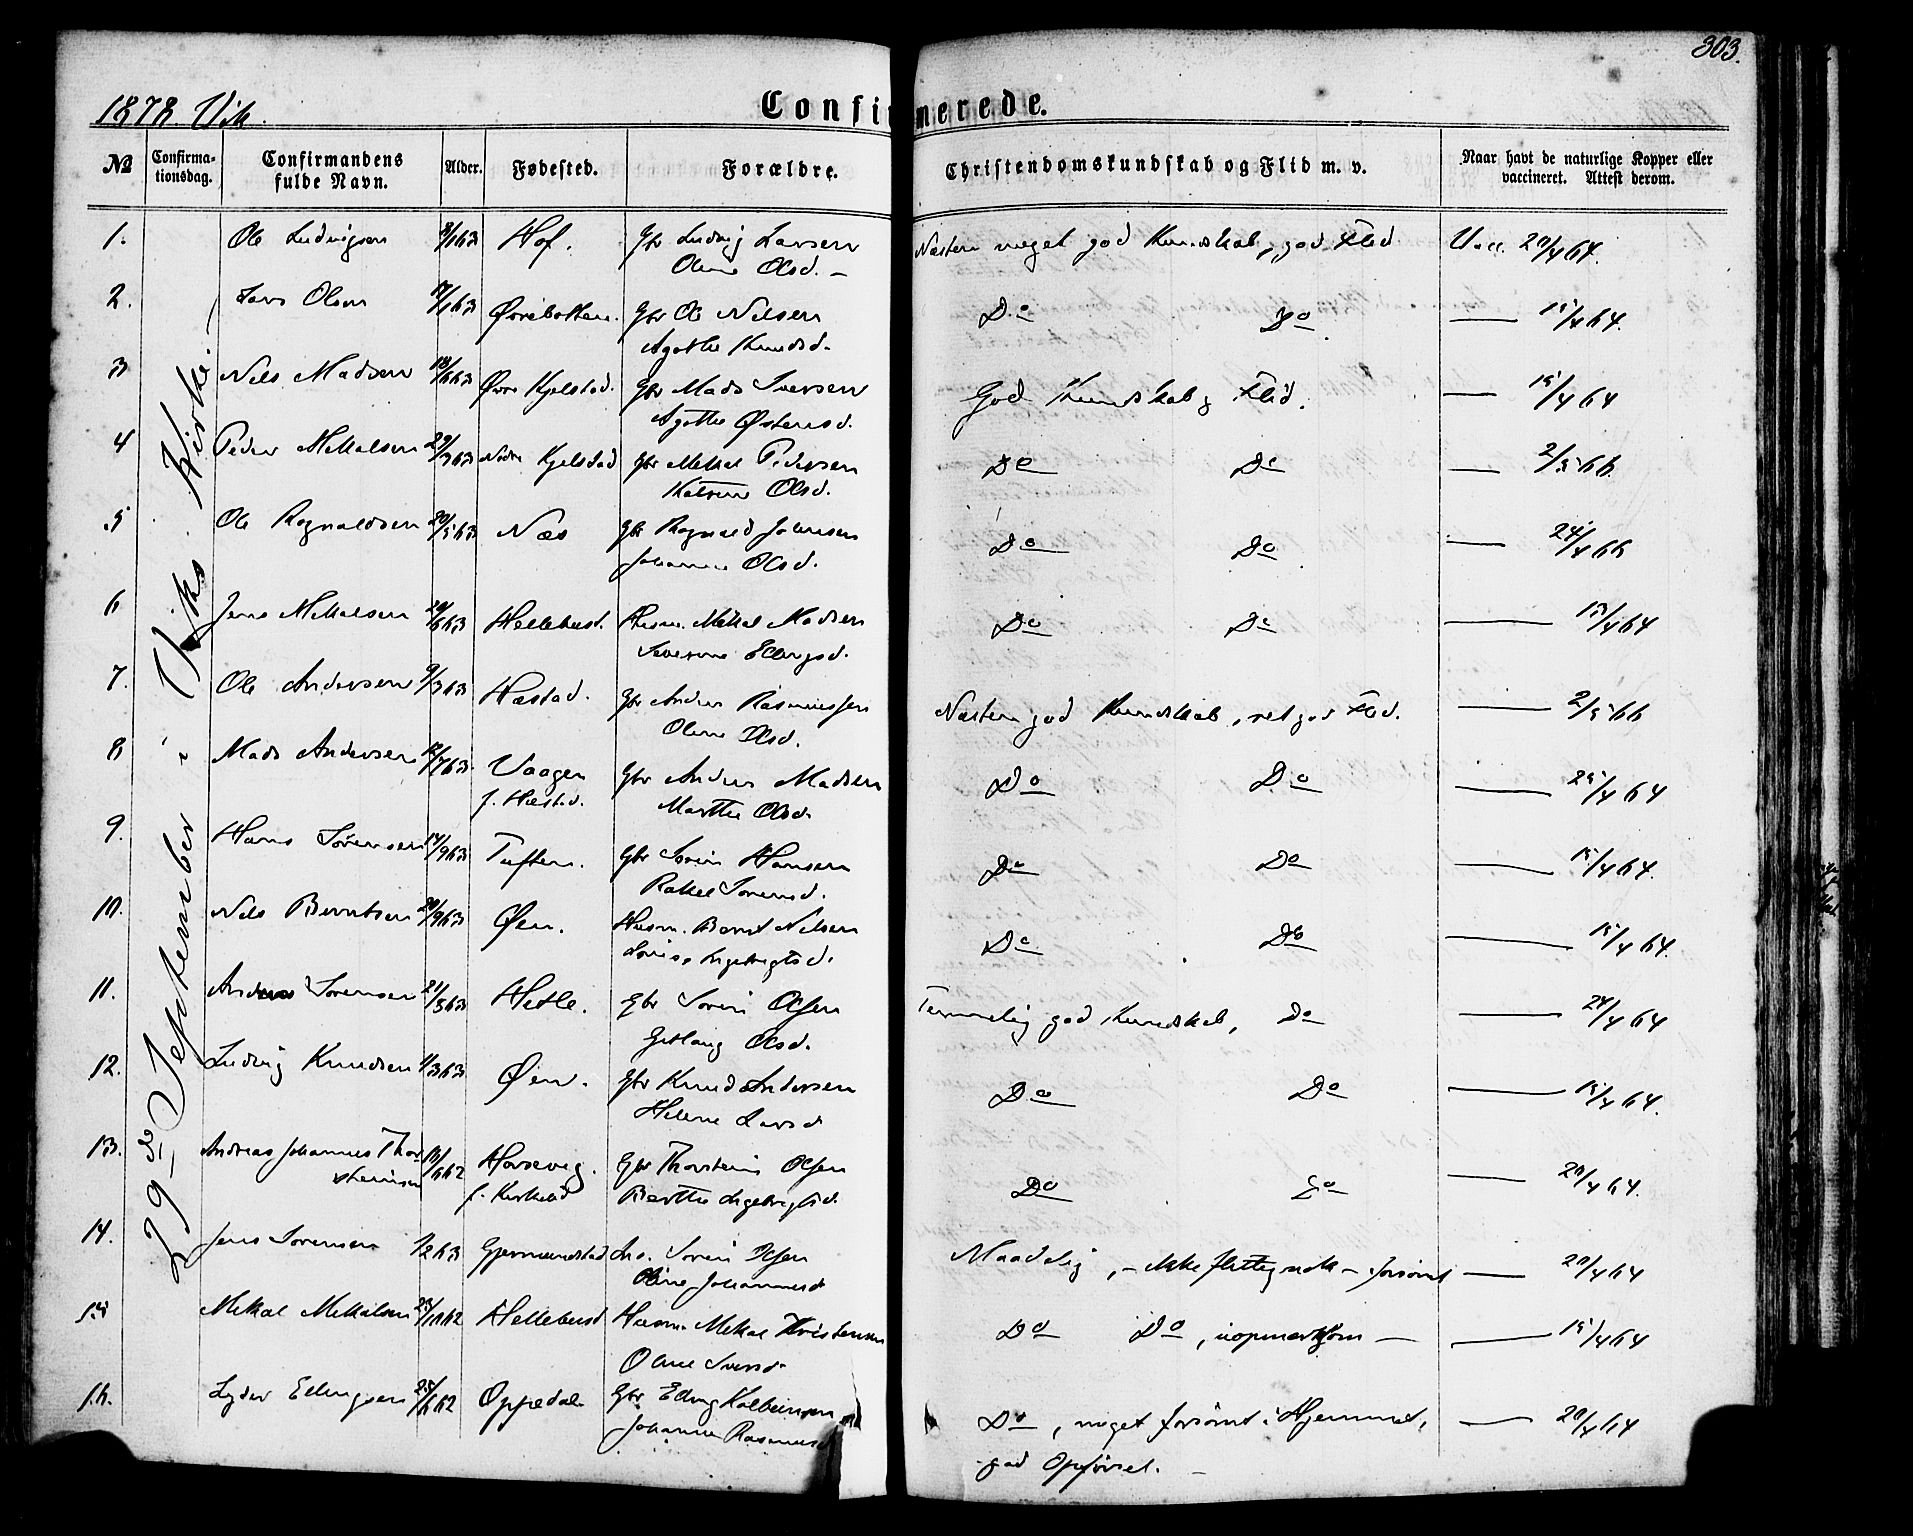 303.
1878. Vik.
Confirmerede.
№ Confirmationsdag. Confirmandens fulde Navn. Alder. Fødested. Forældre. Christendomskundskab og Flid m. v. Naar havt de naturlige Kopper eller vaccineret. Attest derom.
29de September i Viks Kirke
1. Ole Ludvigsen 63 Hof. Gbr Ludvig Larsen Næsten meget god Kundskab, god Flid Vacc. 20/4 64.
Oline Olsd. –
2. Lars Olsen 63 Øvrebotten. Gbr Ole Nilsen Do Do — 15/4 64.
Agathe Knudsd.
3 Nils Madsen 63 Øvre Kjelstad. Gbr Mads Iversen God Kundskab g Flid. — 15/4 64
Agathe Østensd.
4 Peder Mekalsen 29/3 63 Nedre Kjelstad Gbr Mekal Pedersen Do Do — 2/5 66
Katrine Olsd.
5 Ole Ragnaldsen 20/5 63 Næs Gbr Ragnald Johnsen Do Do — 24/4 66
Johanne Olsd.
6 Jens Mekalsen 63 Hellebust. Husm. Mekal Madsen Do Do — 15/4 64
Severine Ellingsd.
7. Ole Andersen 9/3 63 Hæstad. Gbr Anders Rasmussen Næsten god Kundskab, ret god Flid. — 2/5 66
Oline Olsd.
8 Mads Andersen 12/7 63 Vaagen Gbr Anders Madsen Do Do — 25/4 64
f. Hæstad. Marthe Olsd.
9. Hans Sørensen 14/9 63 Tuften. Gbr Sørin Hansen Do Do — 15/4 64.
Rakel Sørensd.
10. Nils Berntsen 63 Øen. Husm. Bernt Nilsen Do Do — 15/4 64.
Lovise Ingebrigtsd.
11. Anders Sørensen 21/3 63 Hetle. Gbr Sørin Olsen Temmelig god Kundskab, Do — 24/4 64
Gitlaug Olsd.
12. Ludvig Knudsen 63 Øen. Gbr Knud Andersen Do Do — 15/4 64.
Helene Larsd
13. Andreas Johannes Thor- 62 Horsevig. Gbr Thorstein Olsen Do Do — 20/4 64.
steinsen f. Kirkeid Berthe Ingebrigtsd.
14. Jens Sørensen 63 Gjermundstad Ins. Sørin Olsen Maadelig, – ikke flittig nok – forsømt — 20/4 64
Oline Johannesd
15 Mekal Mekalsen 62 Hellebust Husm. Mekal Kristensen Do Do, uopmærksom — — 15/4 64
Oline Iversd.
16. Lyder Ellingsen 62 Oppedal Gbr Elling Kolbeinsen Do, meget forsømt i Hjemmet, — 20/4 64
Johanne Rasmusd god Opførsel. –